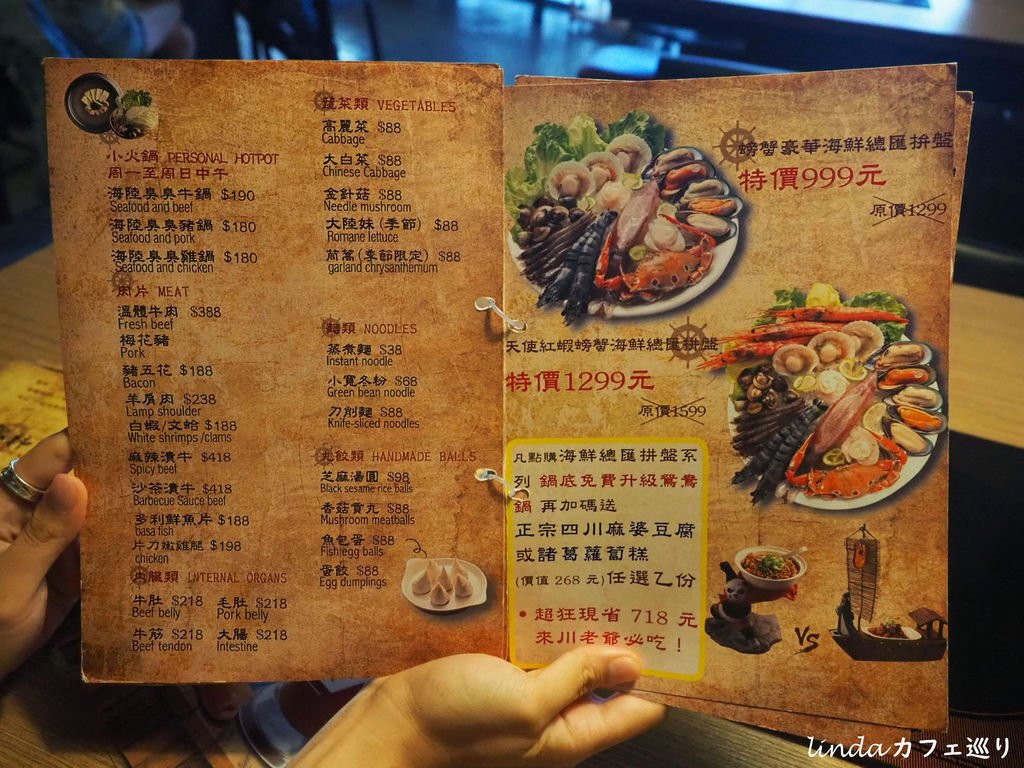 小火鍋 PERSONAL HOTPOT
周一至周日中午
海陸臭臭牛鍋 $190
Seafood and beef
海陸臭臭豬鍋 $180
Seafood and pork
海陸臭臭雞鍋 $180
Seafood and chicken
肉片 MEAT
溫體牛肉 $388
Fresh beef
梅花豬
Pork
豬五花 $188
Bacon
羊肩肉 $238
Lamp shoulder
白蝦/文蛤 $188
White shrimps /clams
麻辣漬牛 $418
Spicy beef
沙茶漬牛 $418
Barbecue Sauce beef
多利鮮魚片 $188
basa fish
片刀嫩雞腿 $198
chicken
內臟類 INTERNAL ORGANS
牛肚 $218 毛肚 $218
Beef belly Pork belly
牛筋 $218 大腸 $218
Beef tendon Intestine
蔬菜類 VEGETABLES
高麗菜 $88
Cabbage
大白菜 $88
Chinese Cabbage
金針菇 $88
Needle mushroom
大陸妹(季節) $88
Romane lettuce
茼蒿(季節限定) $88
garland chrysanthemum
麵類 NOODLES
蒸煮麵 $38
Instant noodle
小寬冬粉 $68
Green bean noodle
刀削麵 $88
Knife-sliced noodles
丸餃類 HANDMADE BALLS
芝麻湯圓 $98
Black sesame rice balls
香菇貢丸 $88
Mushroom meatballs
魚包蛋 $88
Fish/egg balls
蛋餃 $88
Egg dumplings
螃蟹豪華海鮮總匯拼盤
特價999元
原價1299
天使紅蝦螃蟹海鮮總匯拼盤
特價1299元
原價1599
凡點購海鮮總匯拼盤系
列 鍋底免費升級鴛鴦
鍋 再加碼送
正宗四川麻婆豆腐
或諸葛蘿蔔糕
(價值 268 元)任選乙份
• 超狂現省 718 元
來川老爺必吃！
VS
lindaカフェ巡り